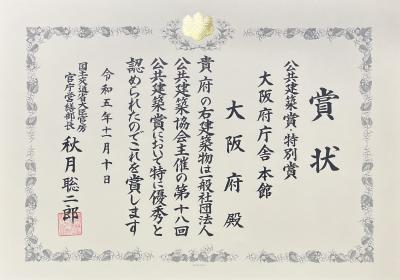 賞状
公共建築賞・特別賞
大阪府庁舎 本館
大阪府 殿
貴府の右建築物は一般社団法人
公共建築協会主催の第十八回
公共建築賞において特に優秀と
認められたのでこれを賞します
令和五年十一月十日
国土交通省大臣官房
官庁営繕部長 秋月聡二郎